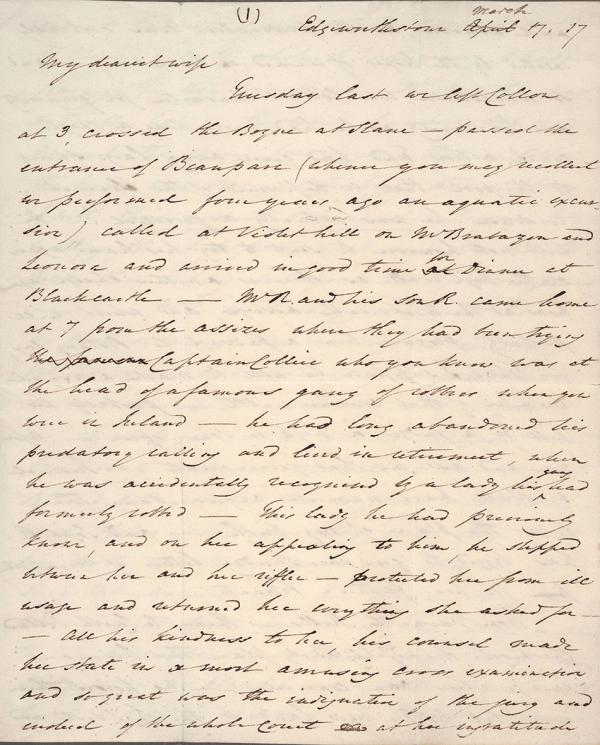 (1)
March
Edgeworthstown April 17. 17
My dearest wife
Tuesday last we left Collon
at 3, crossed the Boyne at Slane — passed the
entrance of Beauparc (where you may recollect
we performed four years ago an aquatic excur-
sion) called at Violet hill on Mrs Brabazon and
Leonora and arrived in good time for at Dinner at
Blackcastle — Mr R. and his son R. came home
at 7 from the assizes where they had been trying
the famous Captain Collier who you know was at
the head of a famous gang of robbers when you
were in Ireland — he had long abandoned his
predatory calling and lived in retirement, when
he was accidentally recognised by a lady his gang had
formerly robbed — This lady he had previously
known, and on her appealing to him, he stepped
between her and her rifler — protected her from ill
usage and returned her everything she asked for —
— All his kindness to her, his counsel made
her state in a most amusing cross examination,
and so great was the indignation of the jury and
indeed of the whole Court at her ingratitude